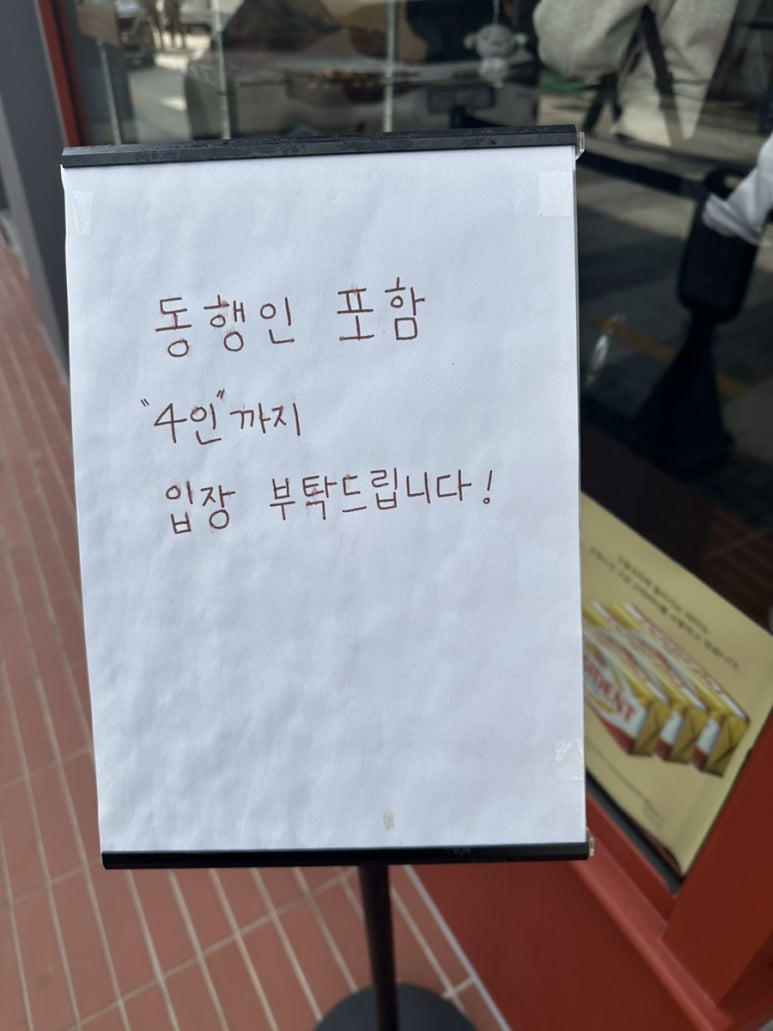 동행인 포함
"4인"까지
입장 부탁드립니다!